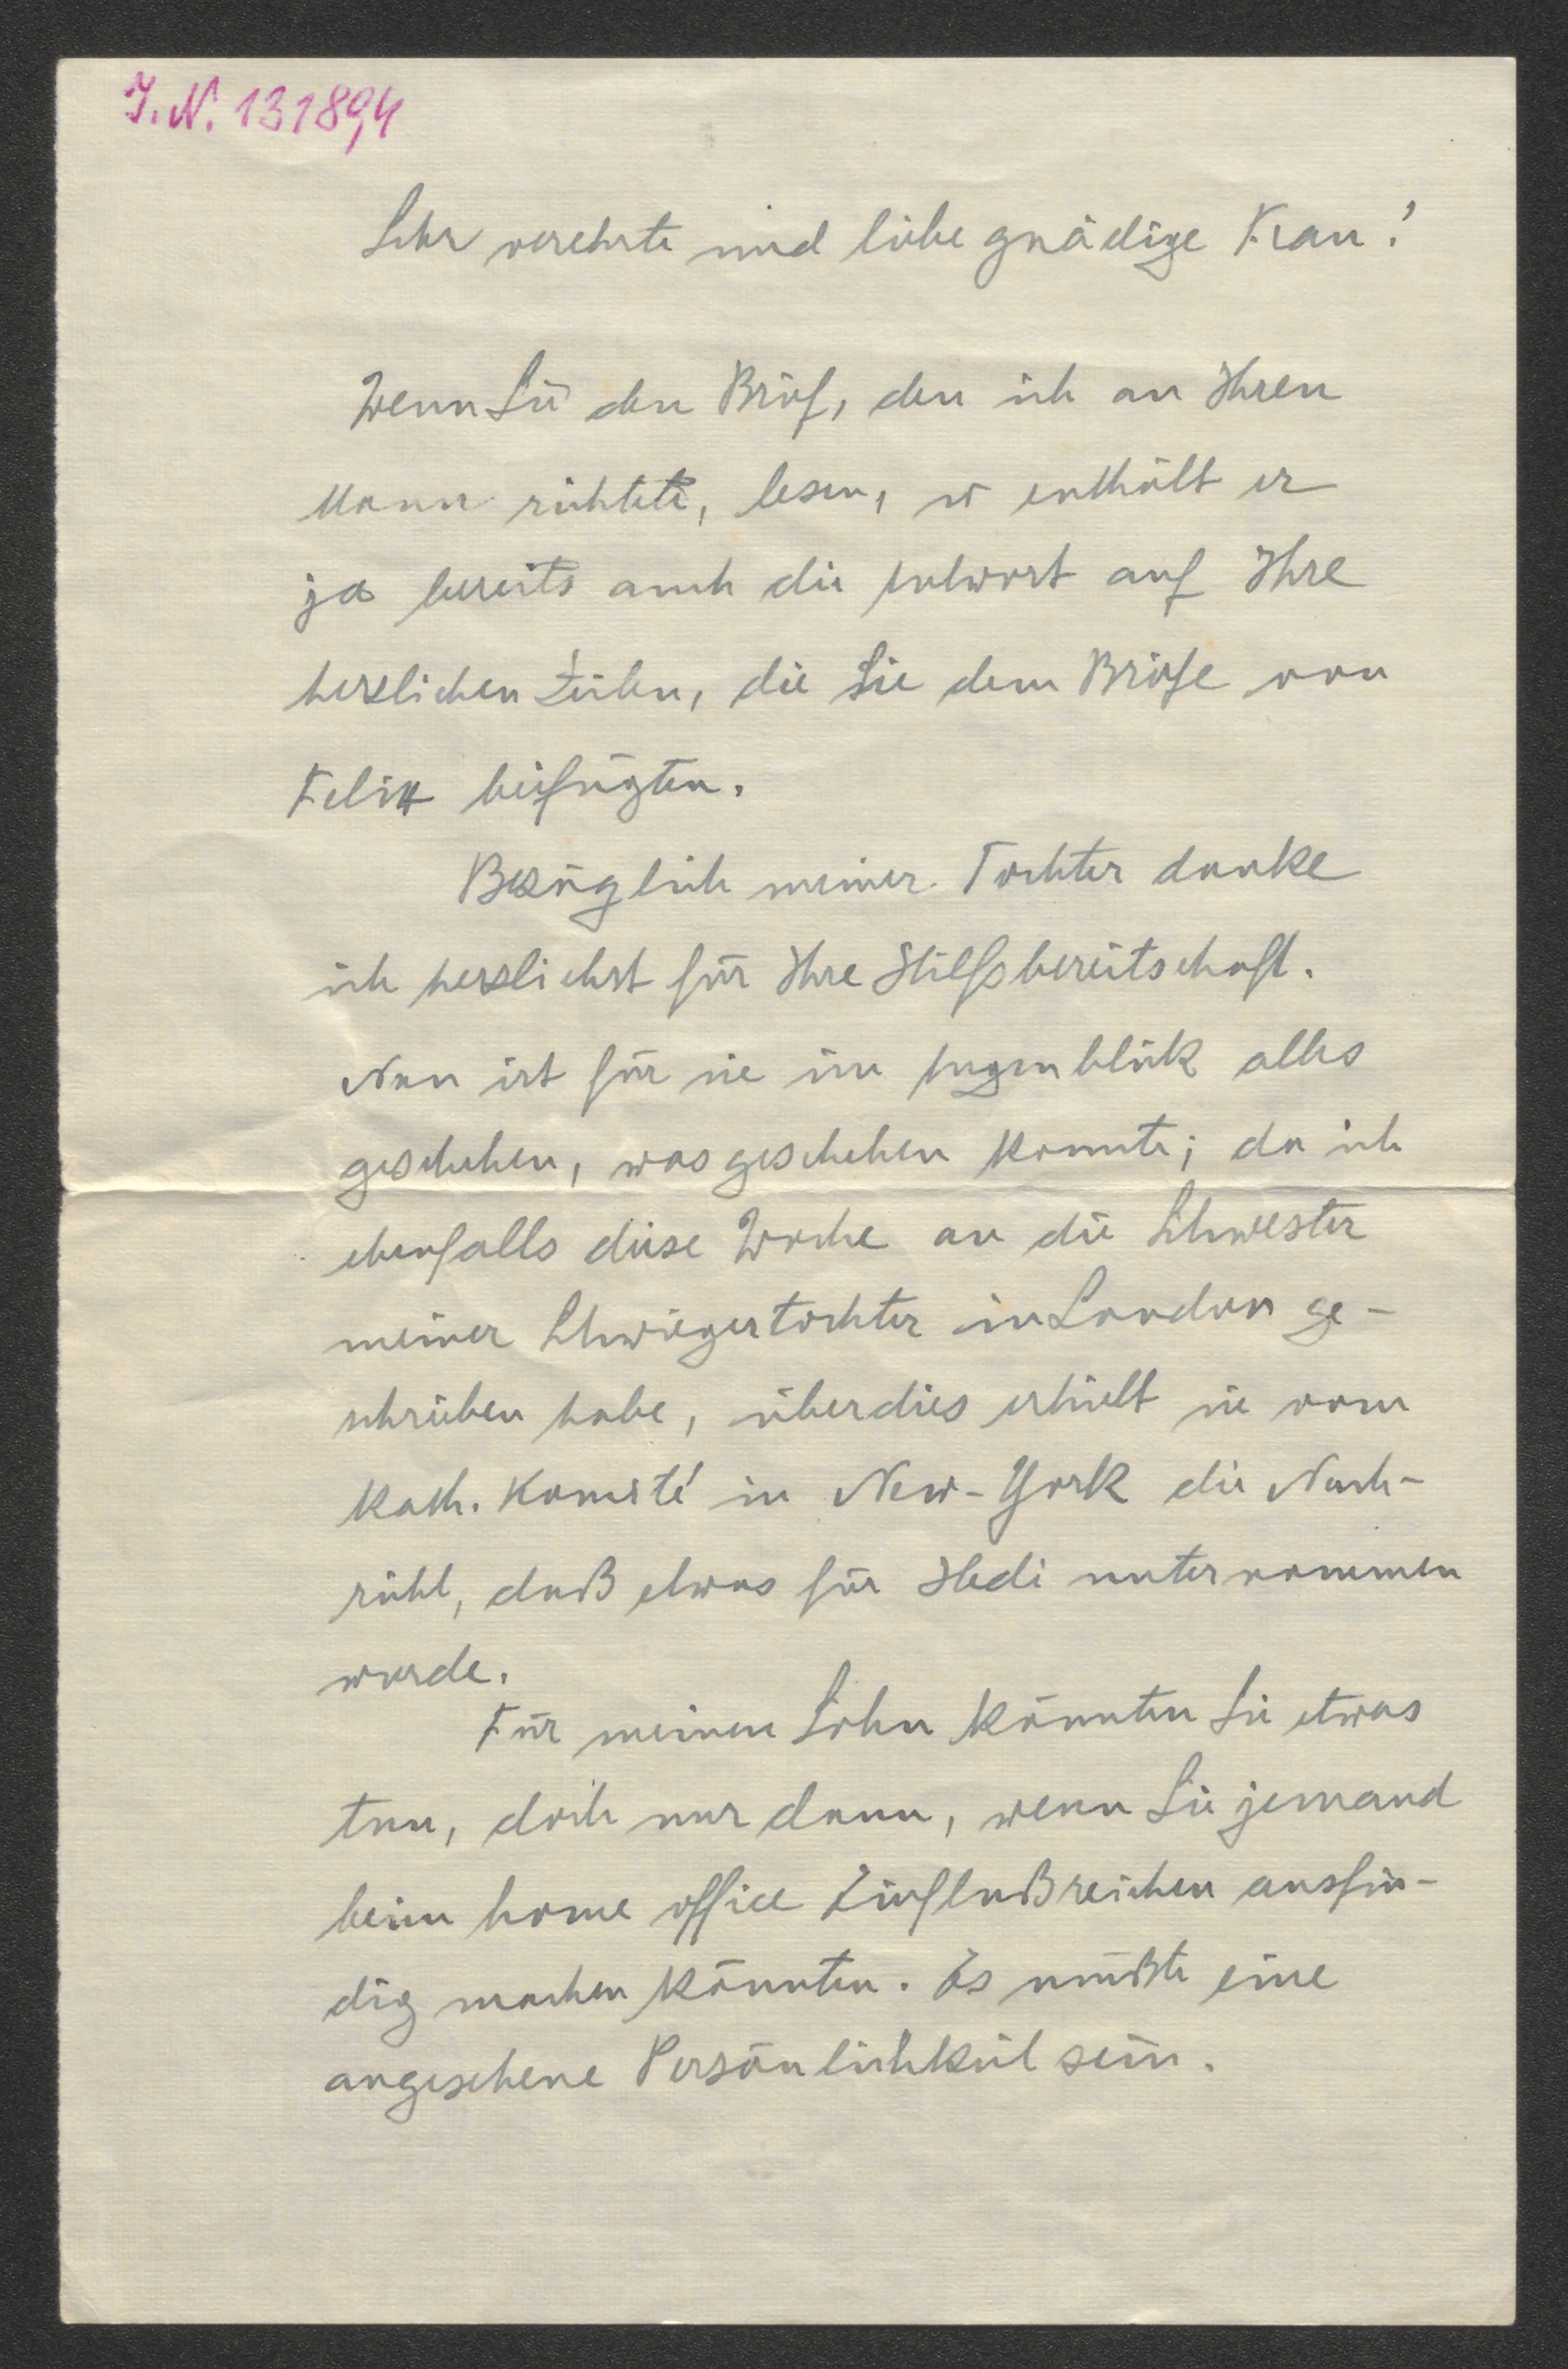 J. N. 131894
Sehr verehrte und liebe gnädige Frau!
Wenn Sie den Brief, den ich an Ihren
Mann richtete, lesen, so enthält er
ja bereits auch die Antwort auf Ihre
herzlichen Zeilen, die Sie dem Briefe von
Felix beifügten.
Bezüglich meiner Tochter danke
ich herzlichst für Ihre Hilfsbereitschaft.
Nun ist für sie im Augenblick alles
geschehen, was geschehen konnte; da ich
ebenfalls diese Woche an die Schwester
meiner Schwiegertochter in London ge-
schrieben habe, überdies erhielt sie vom
Kath. Komité in New-York die Nach-
richt, daß etwas für Hedi unternommen
wurde.
Für meinen Sohn könnten Sie etwas
tun, doch nur dann, wenn Sie jemand
beim home office Einflußreichen ausfin-
dig machen könnten. Es müßte eine
angesehene Persönlichkeit sein.